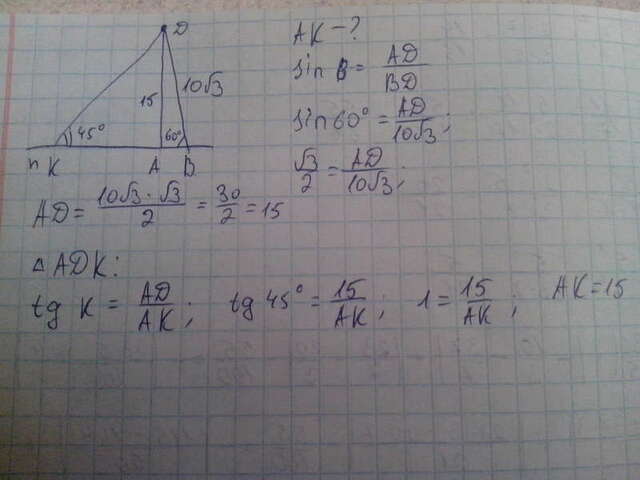 D
15
10√3
45°
60°
n K A B
AK - ?
sin B = AD/BD
sin 60° = AD/10√3;
√3/2 = AD/10√3;
AD = 10√3 · √3/2 = 30/2 = 15
△ADK:
tg K = AD/AK; tg 45° = 15/AK; 1 = 15/AK; AK = 15